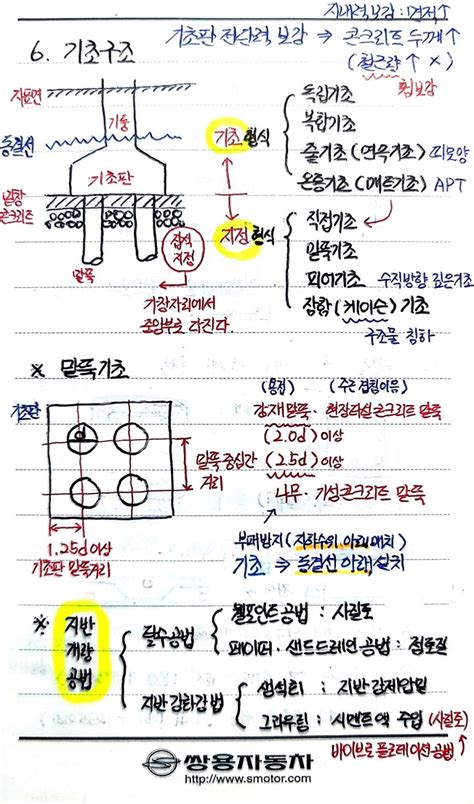 지내력 보강 : 면적↑
6. 기초구조
기초판 전단력 보강 ⇒ 콘크리트 두께↑
(철근량↑ ×)
휨보강
지표면
동결선
기둥
기초판
밑창
콘크리트
말뚝
잡석
지정
가장자리에서
중앙부로 다진다.
기초 형식
독립기초
복합기초
줄기초 (연속기초) 띠모양
온통기초 (매트기초) APT
지정 형식
직접기초
말뚝기초
피어기초 수직방향 깊은기초
잠함 (케이슨) 기초
구조물 침하
※ 말뚝기초
기초판
d
말뚝 중심간
거리
1.25d 이상
기초판 말뚝거리
(용접) (수근 겹침이유)
강재말뚝 · 현장타설콘크리트 말뚝
(2.0d) 이상
(2.5d) 이상
나무 · 기성콘크리트 말뚝
부패방지 (지하수위 아래 배치)
기초 ⇒ 동결선 아래 설치
※ 지반
개량
공법
탈수공법
웰포인트공법 : 사질토
페이퍼 · 샌드드레인 공법 : 점토질
지반 강화공법
생석회 : 지반 강제압밀
그라우팅 : 시멘트액 주입 (사질토)
바이브로 플로테이션공법
쌍용자동차
http://www.smotor.com/